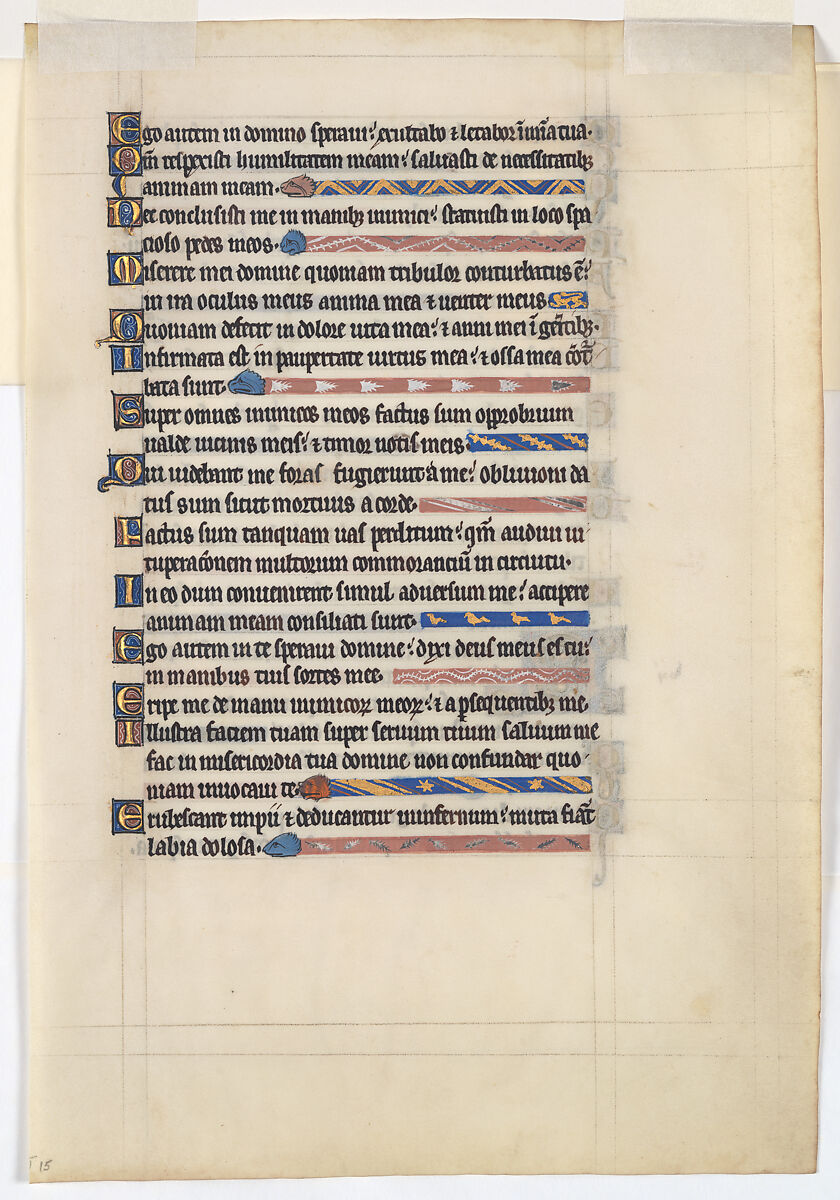 Ego autem in domino speraui: exultabo ⁊ letabor ĩ mĩa tua.
Qm̃ respexisti humilitatem meam: saluasti de necessitatibꝫ
animam meam.
Nec conclusisti me in manibꝫ inimici: statuisti in loco spa
cioso pedes meos.
Miserere mei domine quoniam tribulor conturbatus ẽ:
in ira oculus meus anima mea ⁊ uenter meus
Quoniam defecit in dolore uita mea: ⁊ anni mei ĩ gẽitibꝫ.
Infirmata est in paupertate uirtus mea: ⁊ ossa mea cõt᷑
bata sunt.
Super omnes inimicos meos factus sum opprobrium
ualde uicinis meis: ⁊ timor notis meis
Qui uidebant me foras fugierunt a me: obliuioni da
tus sum sicut mortuus a corde.
Factus sum tanquam uas perditum: qm̃ audiui ui
tuperac̃onem multorum commoranciũ in circuitu.
In eo dum conuenirent simul aduersum me: accipere
animam meam consiliati sunt.
Ego autem in te speraui domine: dixi deus meus es tu:
in manibus tuis sortes mee.
Eripe me de manu inimicoꝝ meoꝝ: ⁊ a ꝑsequentibꝫ me.
Illustra faciem tuam super seruum tuum saluum me
fac in misericordia tua domine non confundar quo
niam inuocaui te.
Erubescant impii ⁊ deducantur in infernum: muta fiãt
labia dolosa.
15